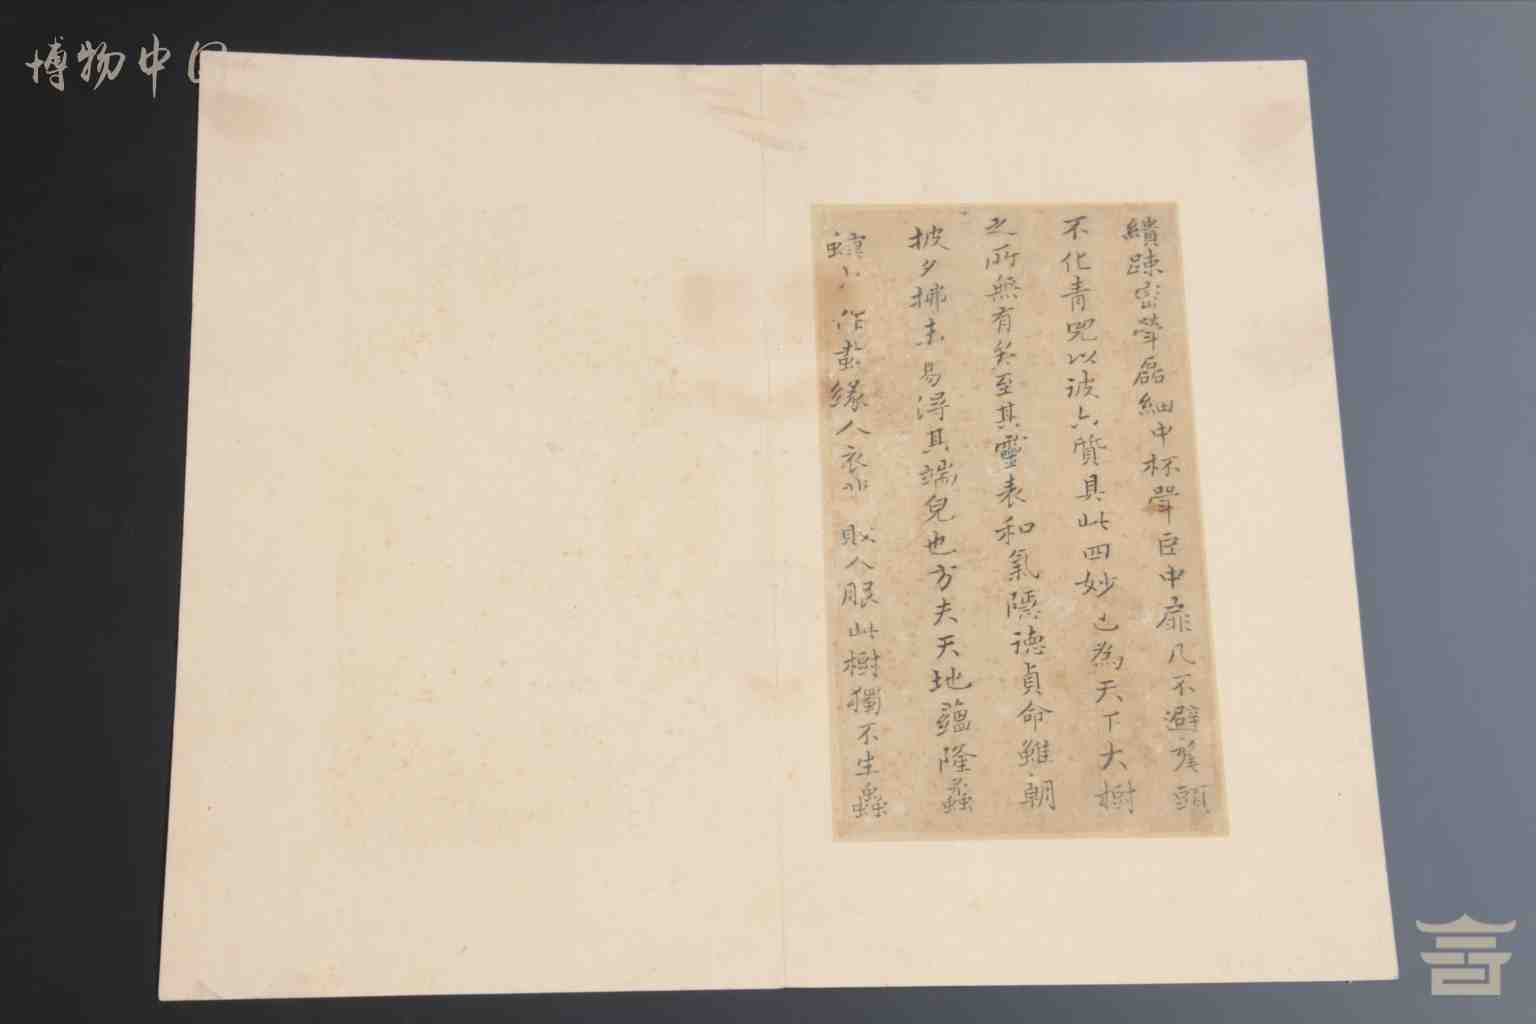 博物中国
繢踈密聲磊細中杯聲臣中扉凡不避
頭
不化青兕以波六質具此四妙已為天下大樹
之所無有矣至其靈表和氣隱德貞命雖朝
披夕拂未易得其端兒也方夫天地蘊隆蟲
作蚩緣人衣 人眼此樹獨不生蟲